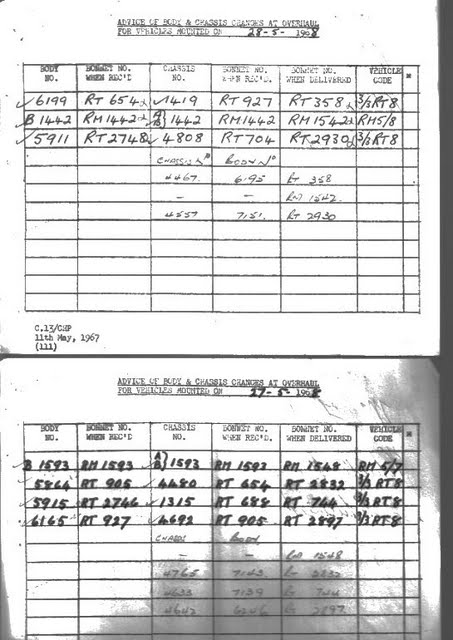 ADVICE OF BODY & CHASSIS CHANGES AT OVERHAUL
FOR VEHICLES MOUNTED ON 28-5-1968
BODY NO. BONNET NO. WHEN REC'D CHASSIS NO. BONNET NO. WHEN REC'D. BONNET NO. WHEN DELIVERED VEHICLE CODE *
✓6199 RT 654 ✓1419 RT 927 RT 358 3/3 RT 8
B 1442 RM 1442 A} B} 1442 RM 1442 RM 1542 RM5/8
✓5911 RT 2748 ✓4808 RT 704 RT 2930 3/3 RT 8
CHASSIS No BODY No
4467 6195 RT 358
— — RM 1542
4557 7151 RT 2930
C.13/CHP
11th May, 1967
(111)
ADVICE OF BODY & CHASSIS CHANGES AT OVERHAUL
FOR VEHICLES MOUNTED ON 27-5-1968
BODY NO. BONNET NO. WHEN REC'D CHASSIS NO. BONNET NO. WHEN REC'D. BONNET NO. WHEN DELIVERED VEHICLE CODE *
B 1593 RM 1593 A} B} 1593 RM 1593 RM 1548 RM 5/7
✓5864 RT 905 ✓4480 RT 654 RT 2832 3/3 RT 8
✓5915 RT 2746 ✓1315 RT 688 RT 744 3/3 RT 8
✓6165 RT 927 ✓4692 RT 905 RT 2897 3/3 RT 8
CHASSIS BODY
— — RM 1548
4765 7143 RT 2832
4633 7139 RT 744
4642 6246 RT 2897